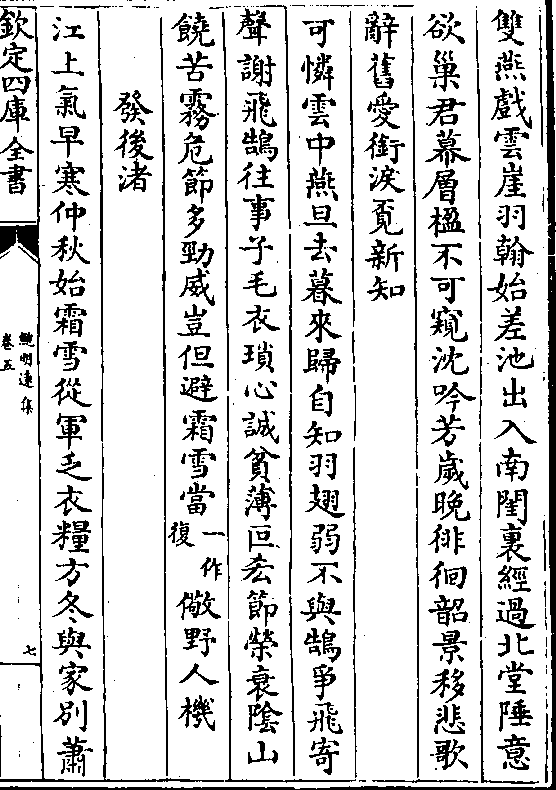 雙燕戲雲崖羽翰始差池出入南閨裏經過北堂陲意
欲巢君幕層楹不可窺沈吟芳歲晚徘徊韶景移悲歌
辭舊愛銜淚覓新知
可憐雲中燕旦去暮來歸自知羽翅弱不與鵠爭飛寄
聲謝飛鵠往事子毛衣瑣心誠貧薄叵𫟃節榮衰陰山
饒苦霧危節多勁威豈但避霜雪當一作復儆野人機
發後渚
江上氣早寒仲秋始霜雪從軍乏衣糧方冬與家別蕭
欽定四庫全書
鮑明遠集
卷五
七